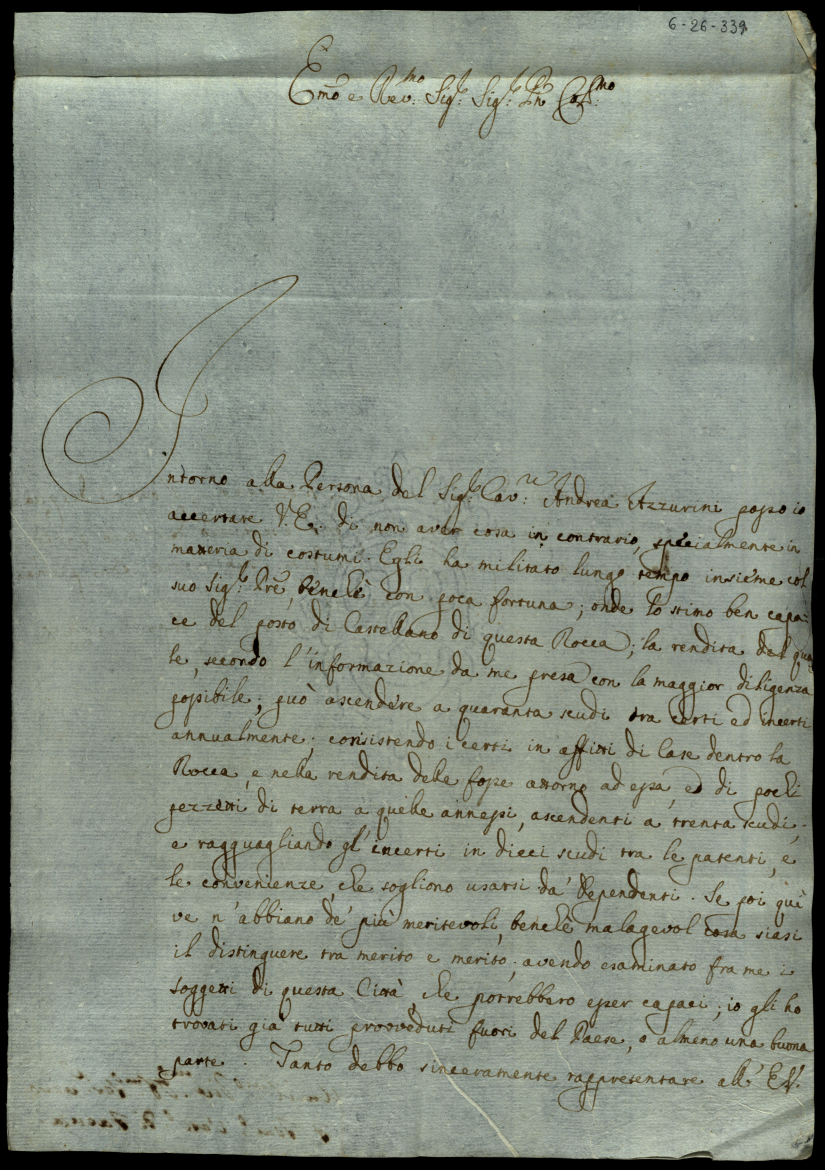 6-26-339
Emo e Rev:mo Sig:r Sig:r Pñ Col:mo
Intorno alla Persona del Sig:r Cav:re Andrea Azzurini posso io
accertare V.E. di non aver cosa in contrario, specialmente in
materia di costumi. Egli ha militato lungo tempo insieme col
suo Sig:r Pre, benchè con poca fortuna; onde lo stimo ben capa-
ce del posto di Castellano di questa Rocca; la rendita del qua-
le, secondo l'informazione da me presa con la maggior diligenza
possibile, può ascendere a quaranta scudi tra certi ed incerti
annualmente; consistendo i certi in affitti di Case dentro la
Rocca, e nella rendita delle fosse attorno ad essa, ed di pochi
pezzetti di terra a quelle annessi, ascendenti a trenta scudi;
e ragguagliando gl'incerti in dieci scudi tra le patenti, e
le convenienze, che sogliono usarsi da' dependenti. Se poi quì
ve n'abbiano de' più meritevoli, benchè malagevol cosa siasi
il distinguere tra merito e merito; avendo esaminato fra me i
soggetti di questa Città, che potrebbero esser capaci; io gli ho
trovati già tutti provveduti fuori del Paese, o almeno una buona
parte. Tanto debbo sinceramente rappresentare all' E.V.